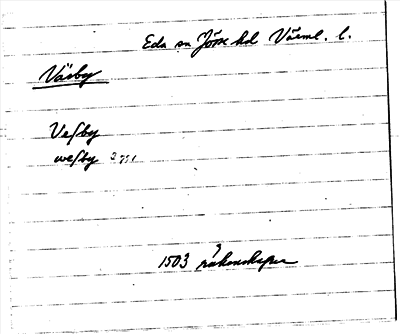 Eda sn Jösse hd Värml. l.
Väsby
Vesby
wesby 2 ggr
1503 räkenskaper